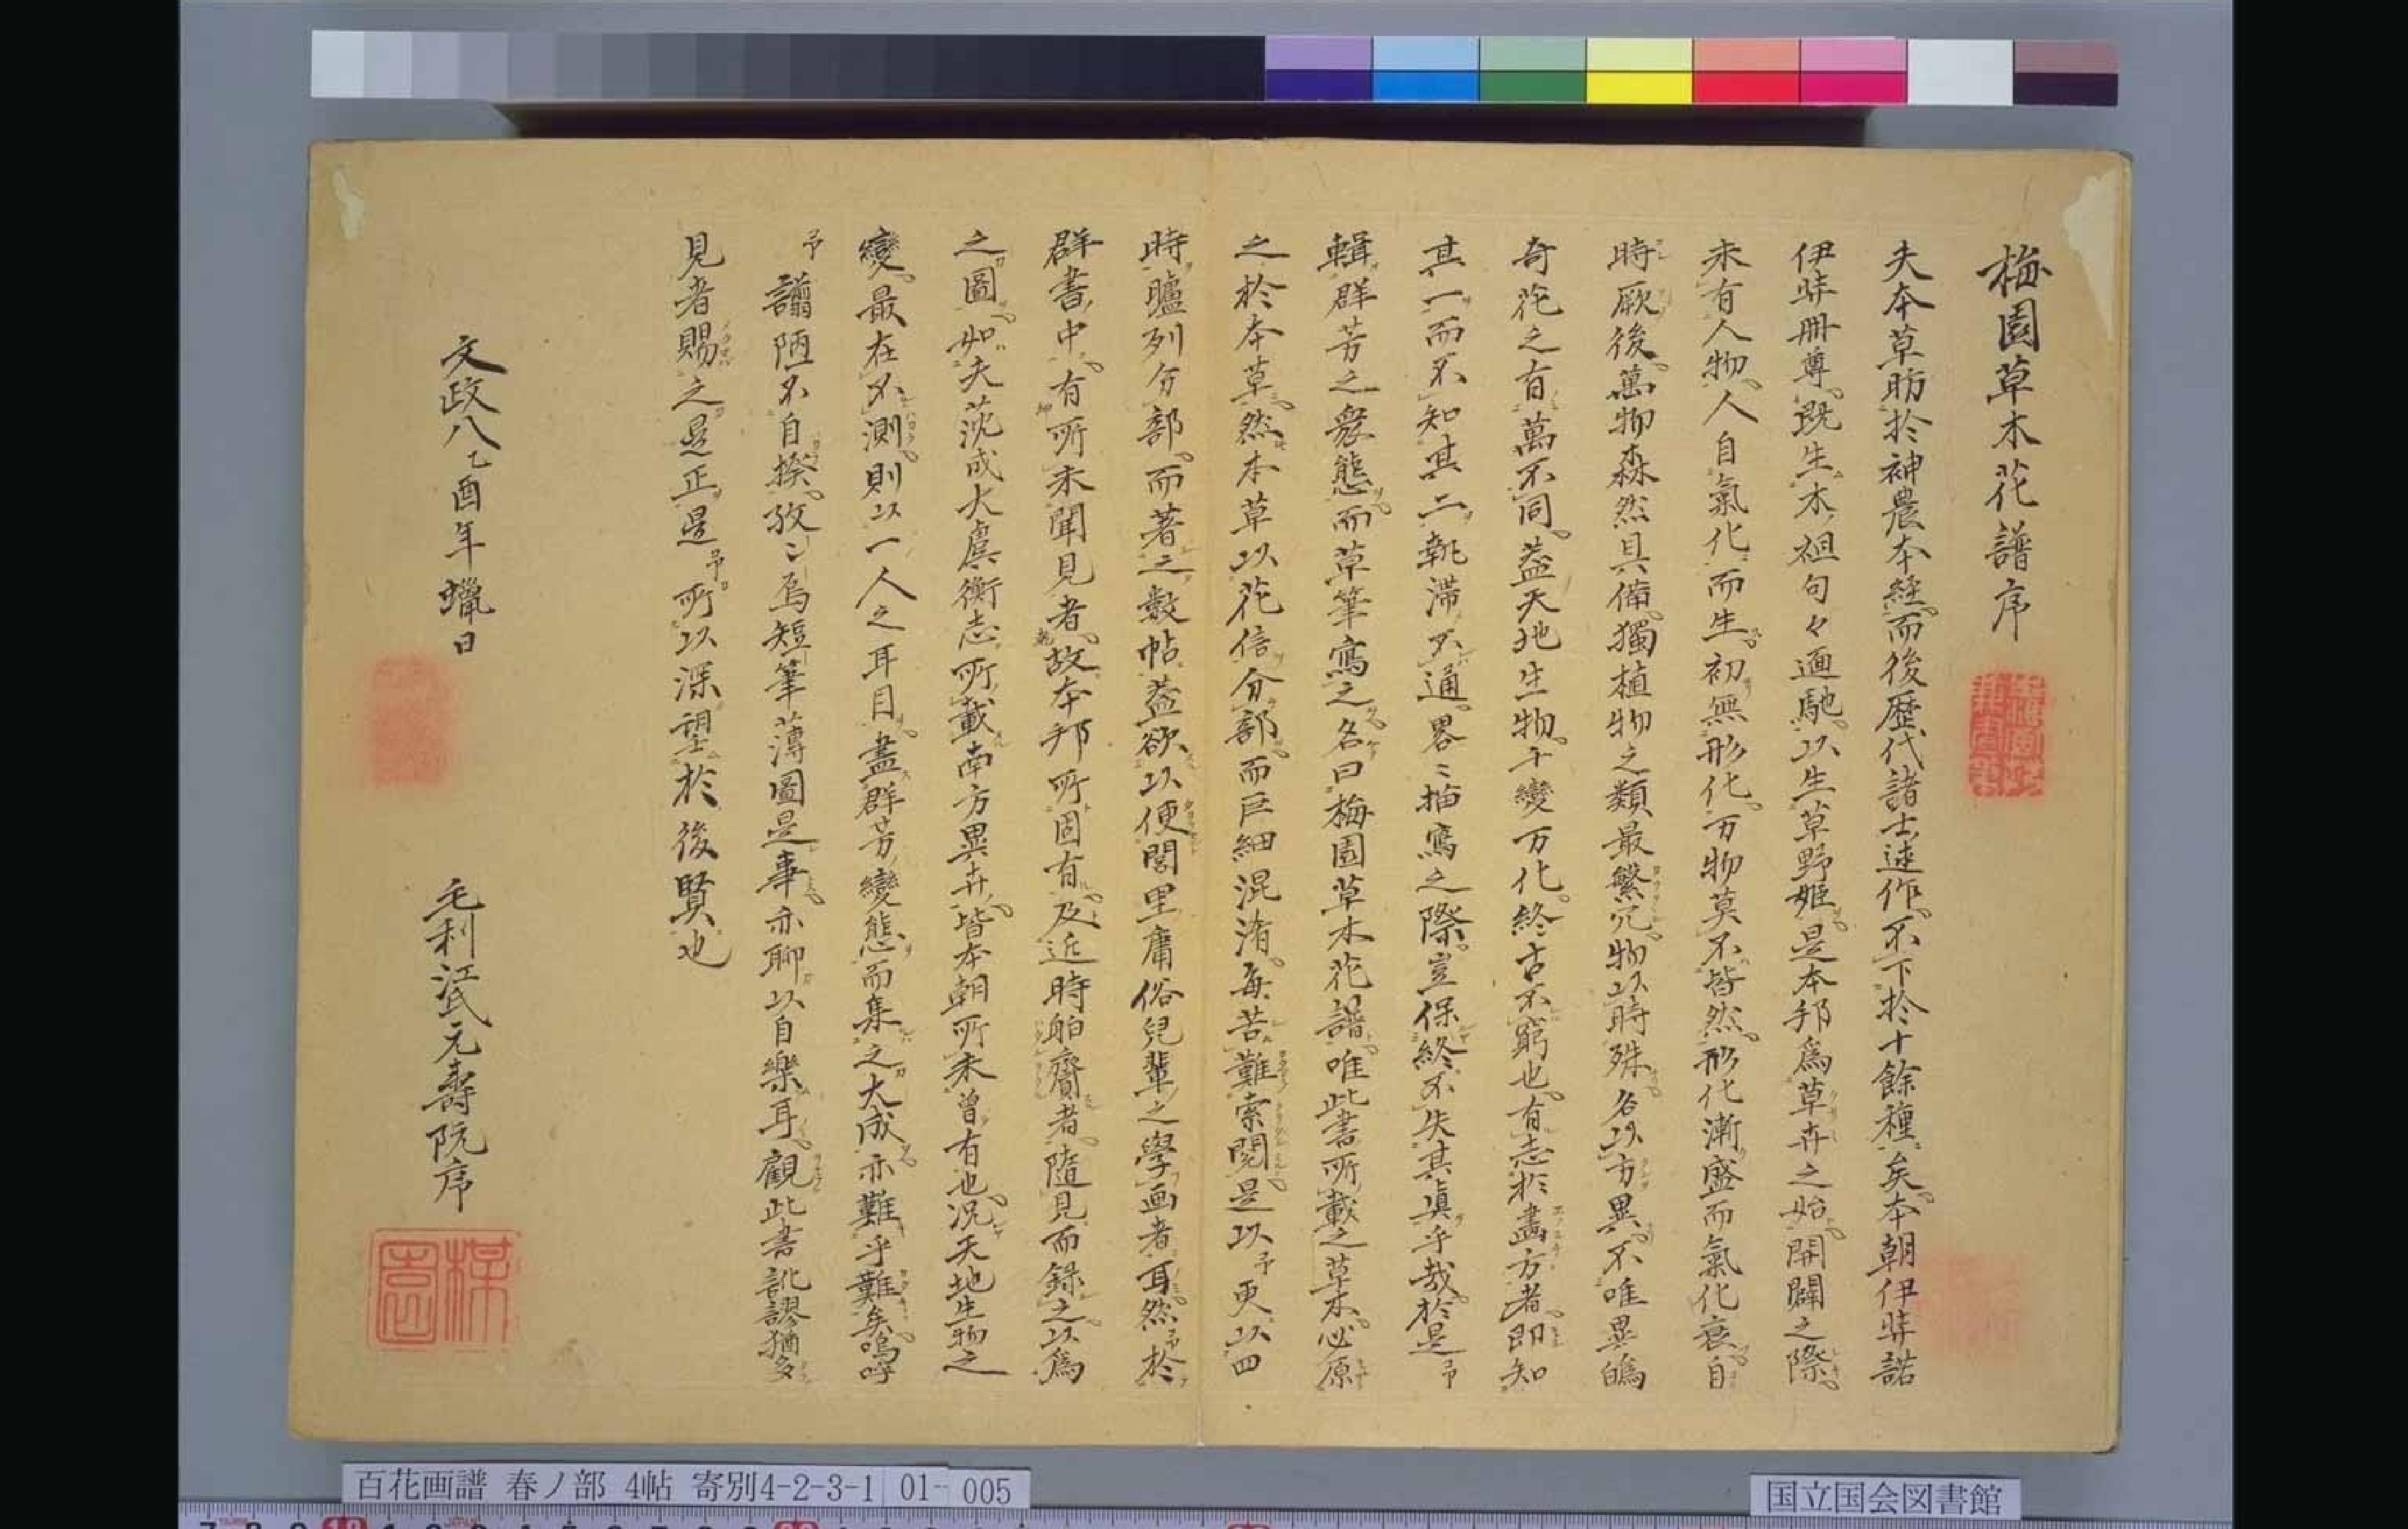 梅園草木花譜序
夫本草昉於神農本經而後歴代諸士述作不下於十餘種矣本朝伊弉諾
伊弉冊尊既生木祖句々迺馳以生草野姫是本邦爲草卉之始開闢之際
未有人物人自氣化而生初無形化万物莫不皆然形化漸盛而氣化衰自
時厥後萬物森然具備獨植物之類最繁冗物以時殊名以方異不唯異
奇花之有萬不同蓋天地生物千變万化終古不窮也有志於畵方者即知
其一而不知其二執滞不通畧〻描寫之際豈保終不失其眞乎哉於是予
輯群芳之衆態而草筆寫之名曰梅園草木花譜唯此書所載之草木必原
之於本草然本草以花信分部而巨細混淆毎苦難索閲是以予更以四
時臚列分部而著之數帖蓋欲以便閭里庸俗兒輩之學画者耳然予於
群書中有所未聞見者故本邦所固有及近時舶齎者隨見而録之以爲
之圖如夫范成大虞衡志所載南方異卉皆本朝所未曾有也況天地生物之
變最在不測則以一人之耳目盡群芳變態而集之大成亦難乎難矣嗚呼
予譾陋不自揆孜〻焉短筆薄圖是事亦聊以自樂耳觀此書訛謬猶多
見者賜之是正是予所以深望於後賢也
文政八乙酉年蠟日
毛利江氏元壽阮序
楳園
百花画譜 春ノ部 4帖 寄別4-2-3-1 01- 005
国立国会図書館